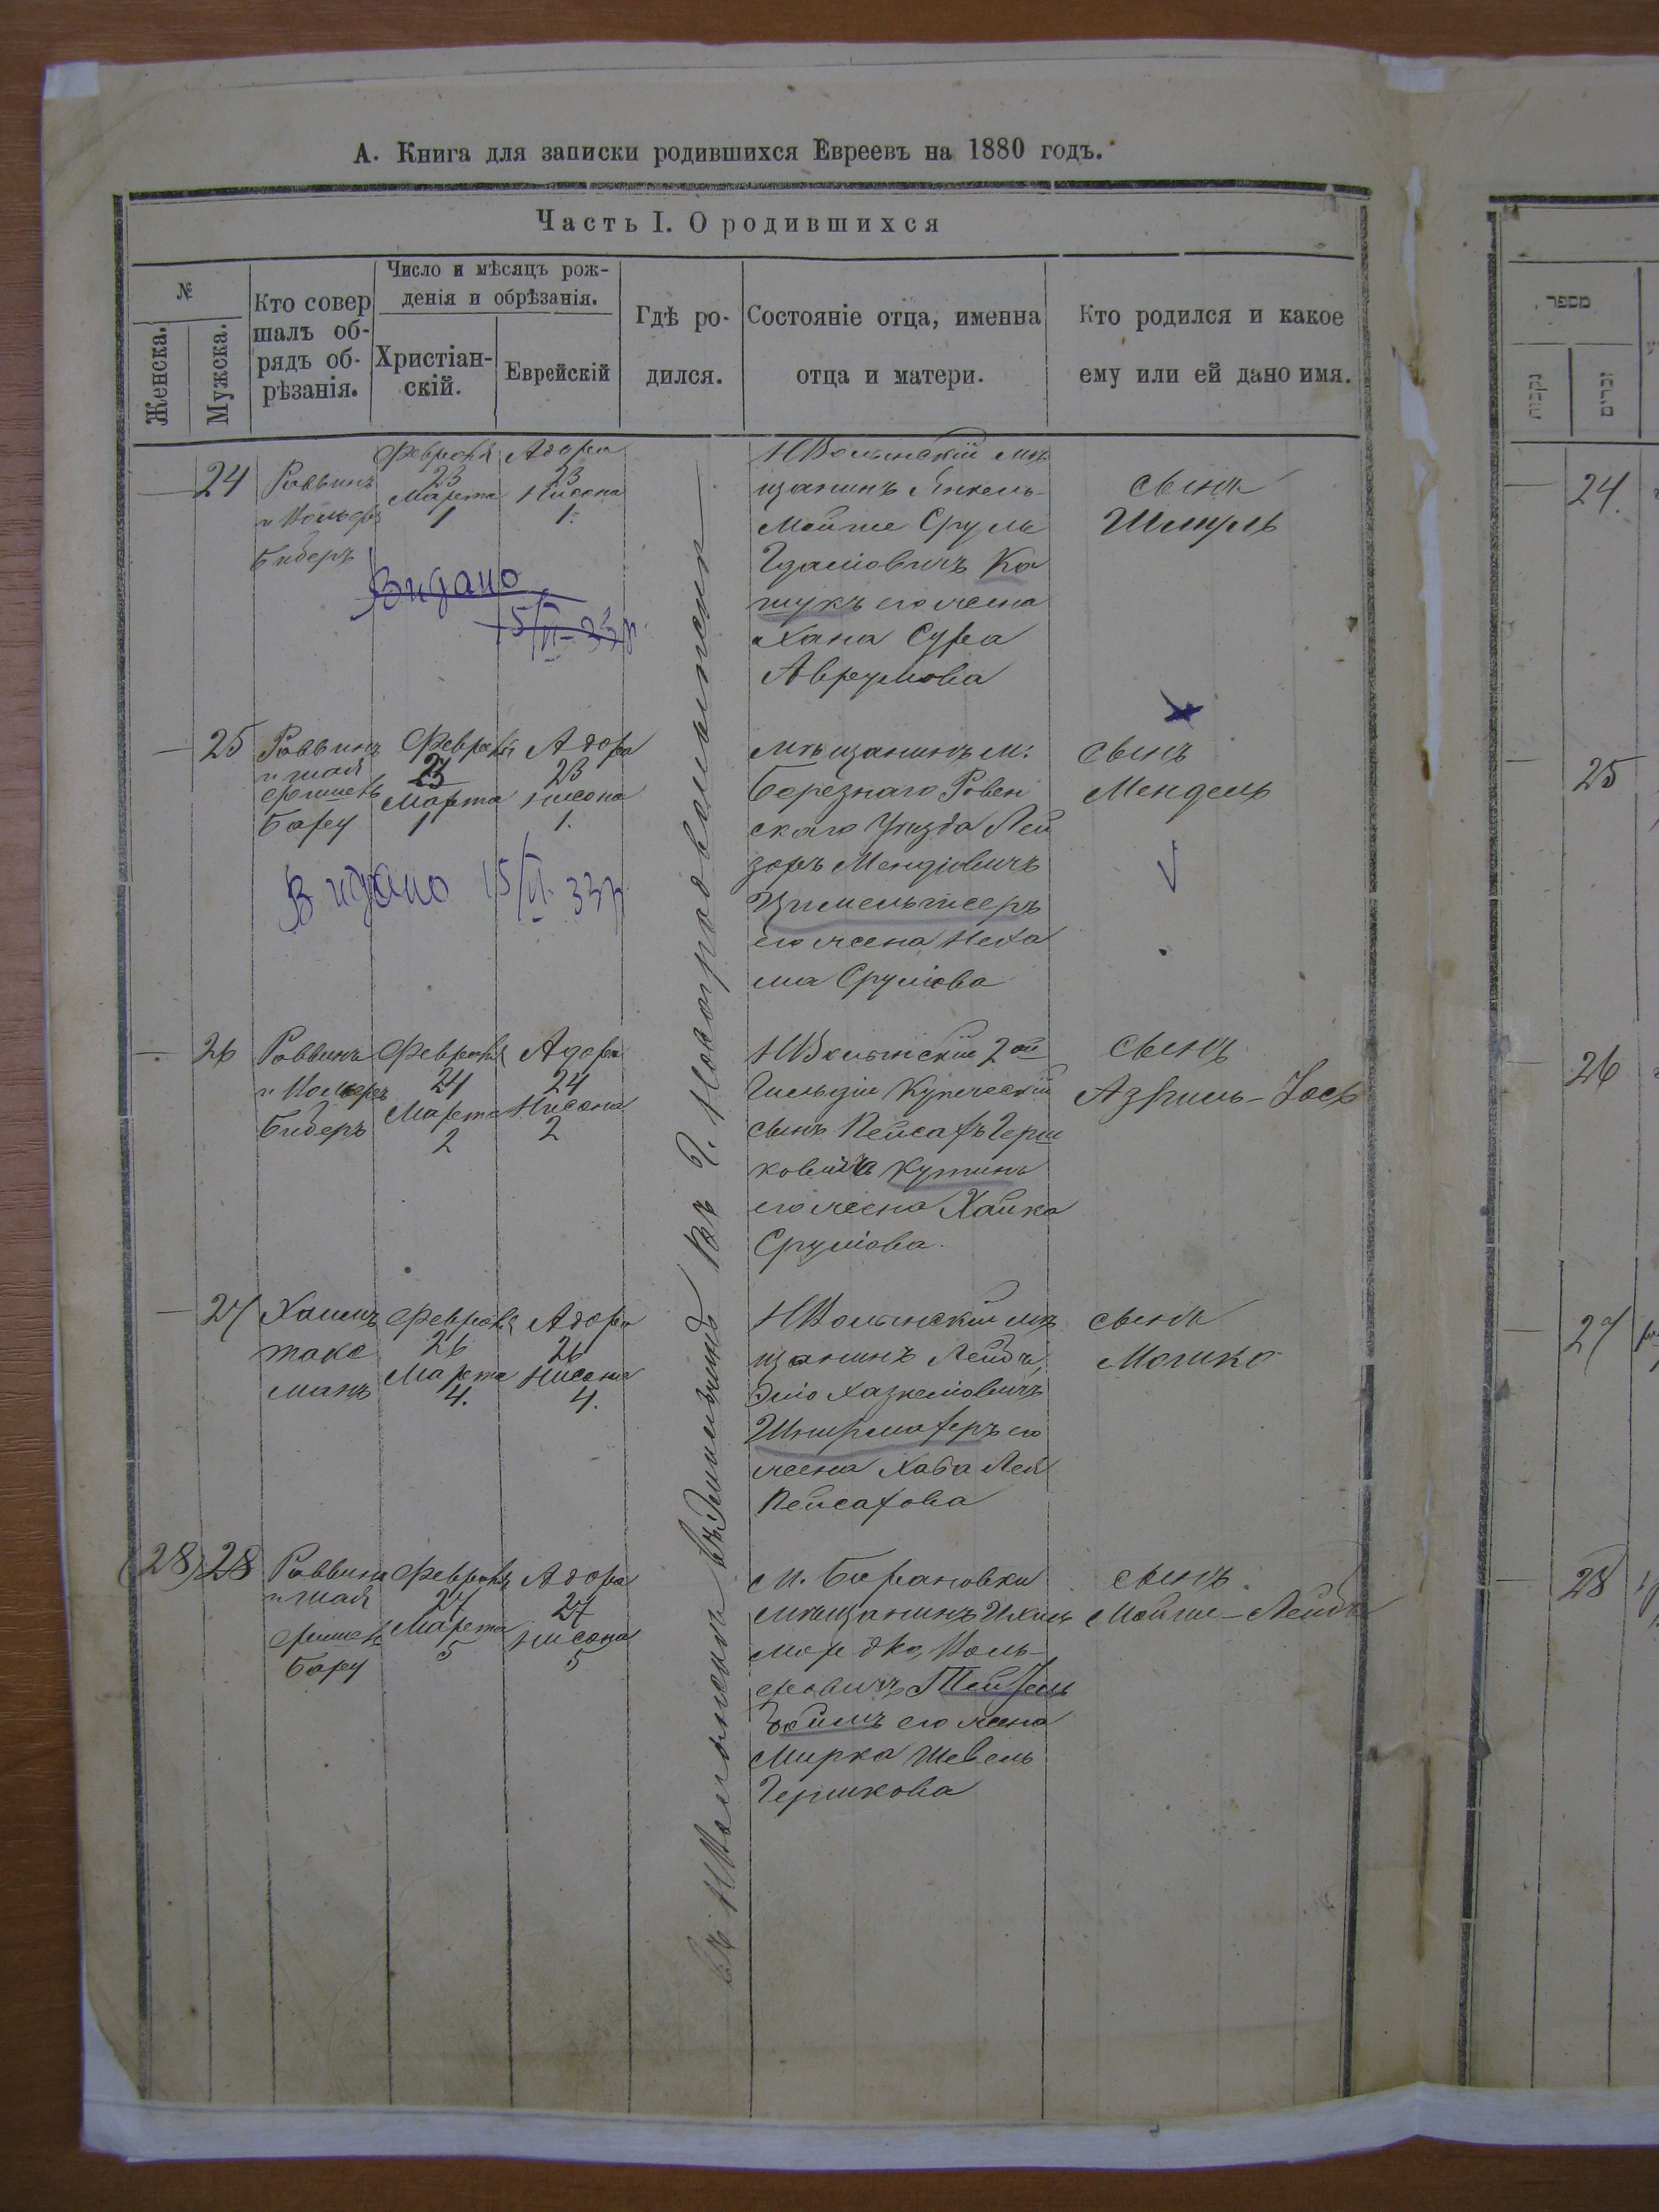 А. Книга для записки родившихся Евреевъ на 1880 годъ.
Часть I. О родившихся
№
Женска.
Мужска.
Кто совер
шалъ об-
рядъ об-
рѣзанія.
Число и мѣсяцъ рож-
денія и обрѣзанія.
Христіан-
скій.
Еврейскій
Гдѣ ро-
дился.
Состояніе отца, именна
отца и матери.
Кто родился и какое
ему или ей дано имя.
24
Раввинъ
и Вольфъ
Биберъ
Февраля
23
Марта
1
Адора
23
Нисона
1.
НВолынскій мѣ
щанинъ Янкель-
Мойше Сруль
Ка
шукъ его жена
Хана Сура
Аврумова
сынъ
Шмуль
Видано
15/VI-33р.
25
Раввинъ
и Шая
Фишель
Бару
Февраля
23
Марта
1
Адора
23
Нисона
1.
Мѣщанинъ м.
Березнаго Ровен
скаго Уѣзда Лей
зоръ Менділвичъ
Цимельтсеръ
его жена Неха
ма Сруліова
сынъ
Мендель
Видано 15/VI-33р
26
Раввинъ
и Вольфъ
Биберъ
Февраля
24
Марта
2
Адора
24
Нисона
2
НВолынскій 2ой
Гильдіи Купеческій
сынъ Пейсахъ Герш
ковичъ Кутинъ
его жена Хайка
Сруліова.
сынъ
Азриль-Іось
27
Хаимъ
такс
манъ
Февраля
26
Марта
4.
Адора
26
Нисона
4.
НВолынскій мѣ
щанинъ Лейба
Эліо Хазкеліовичъ
его
жена Хава Лея
Пейсахова
сынъ
Мошко
(28)
28
Раввинъ
и Шая
Фишель
Бару
Февраля
27
Марта
5
Адора
27
Нисона
5
м. Барановки
мѣщанинъ Ихиль
Мордко Воль-
фовичъ Тейтель
боймъ его жена
Мирка Шевель
Гершкова
сынъ
Мойше-Лейба
מספר
נקבות
זכרים
24.
25
26
27
28